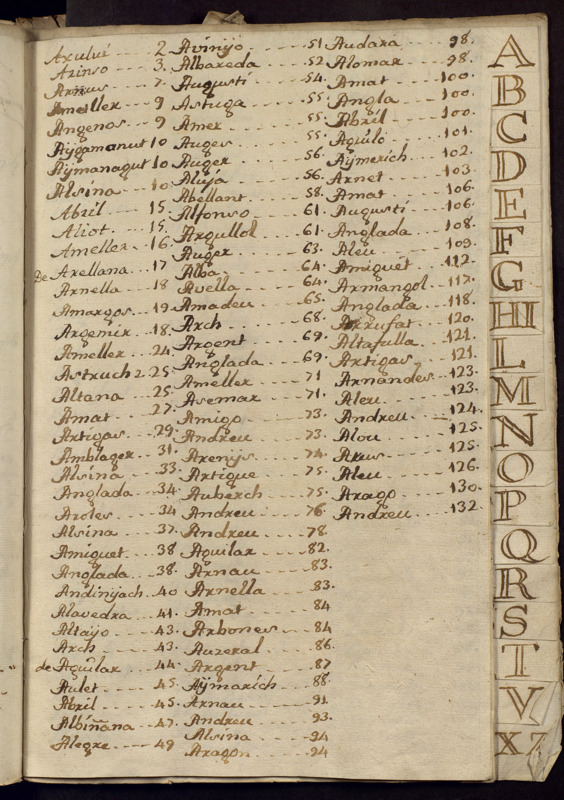 Axului 2
Azinso 3.
Arnus 7.
Ameller 9
Angenos 9
Aÿgamanut 10
Aÿmanagut 10
Alsina 10
Abril 15.
Aliot 15.
Ameller 16.
De Arellana 17
Arnella 18
Amargos 19
Argemir 18.
Ameller 24.
Astruch 2 25
Altana 25
Amat 27.
Artigas 29.
Amblager 31.
Alsina 33.
Anglada 34
Aroles 34
Alsina 37.
Amiguet 38
Anglada 38.
Andinÿach 40
Alavedra 41.
Altaÿo 43.
Arch 43.
de Aguilar 44.
Aulet 45.
Abril 45.
Albiñana 47.
Alegre 49
Avinÿo 51
Albareda 52
Augusti 54.
Astuga 55.
Amer 55.
Auger 55.
Auger 56.
Aluja 56.
Abellant 58.
Alfonso 61.
Argullol 61.
Auger 63.
Alba 64.
Avella 64.
Amadeu 65.
Arch 68.
Argent 69.
Anglada 69.
Ameller 71
Asemar 71.
Amigo 73.
Andreu 73.
Arenÿs 74.
Artigue 75.
Auberch 75.
Andreu 76.
Andreu 78.
Aguilar 82.
Arnau 83.
Arnella 83.
Amat 84
Arbones 84
Auzeral 86.
Argent 87
Aÿmarich 88
Arnau 91.
Andreu 93.
Alsina 94
Aragon 94
Audara 98.
Alomar 98.
Amat 100.
Angla 100.
Abril 100.
Aguilo 101.
Aÿmerich 102.
Arnet 103.
Amat 106.
Augusti 106.
Anglada 108.
Aleu 109.
Amiguet 112.
Armangol 117.
Anglada 118.
Arrufat 120.
Altafulla 121.
Artigas 121.
Arnandes 123.
Aleu 123.
Andreu 124.
Alou 125.
Arus 125.
Aleu 126.
Arago 130.
Andreu 132.
A
B
C
D
E
F
G
HI
L
M
N
O
P
Q
R
S
T
V
X Z